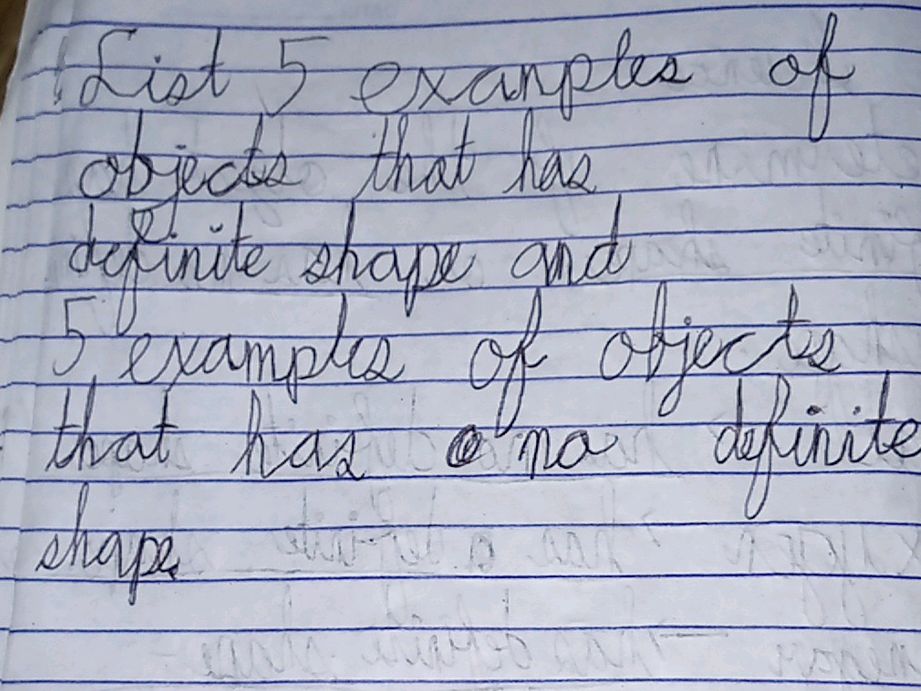 List 5 examples of
objects that has
definite shape and
5 examples of objects
that has no definite
shape